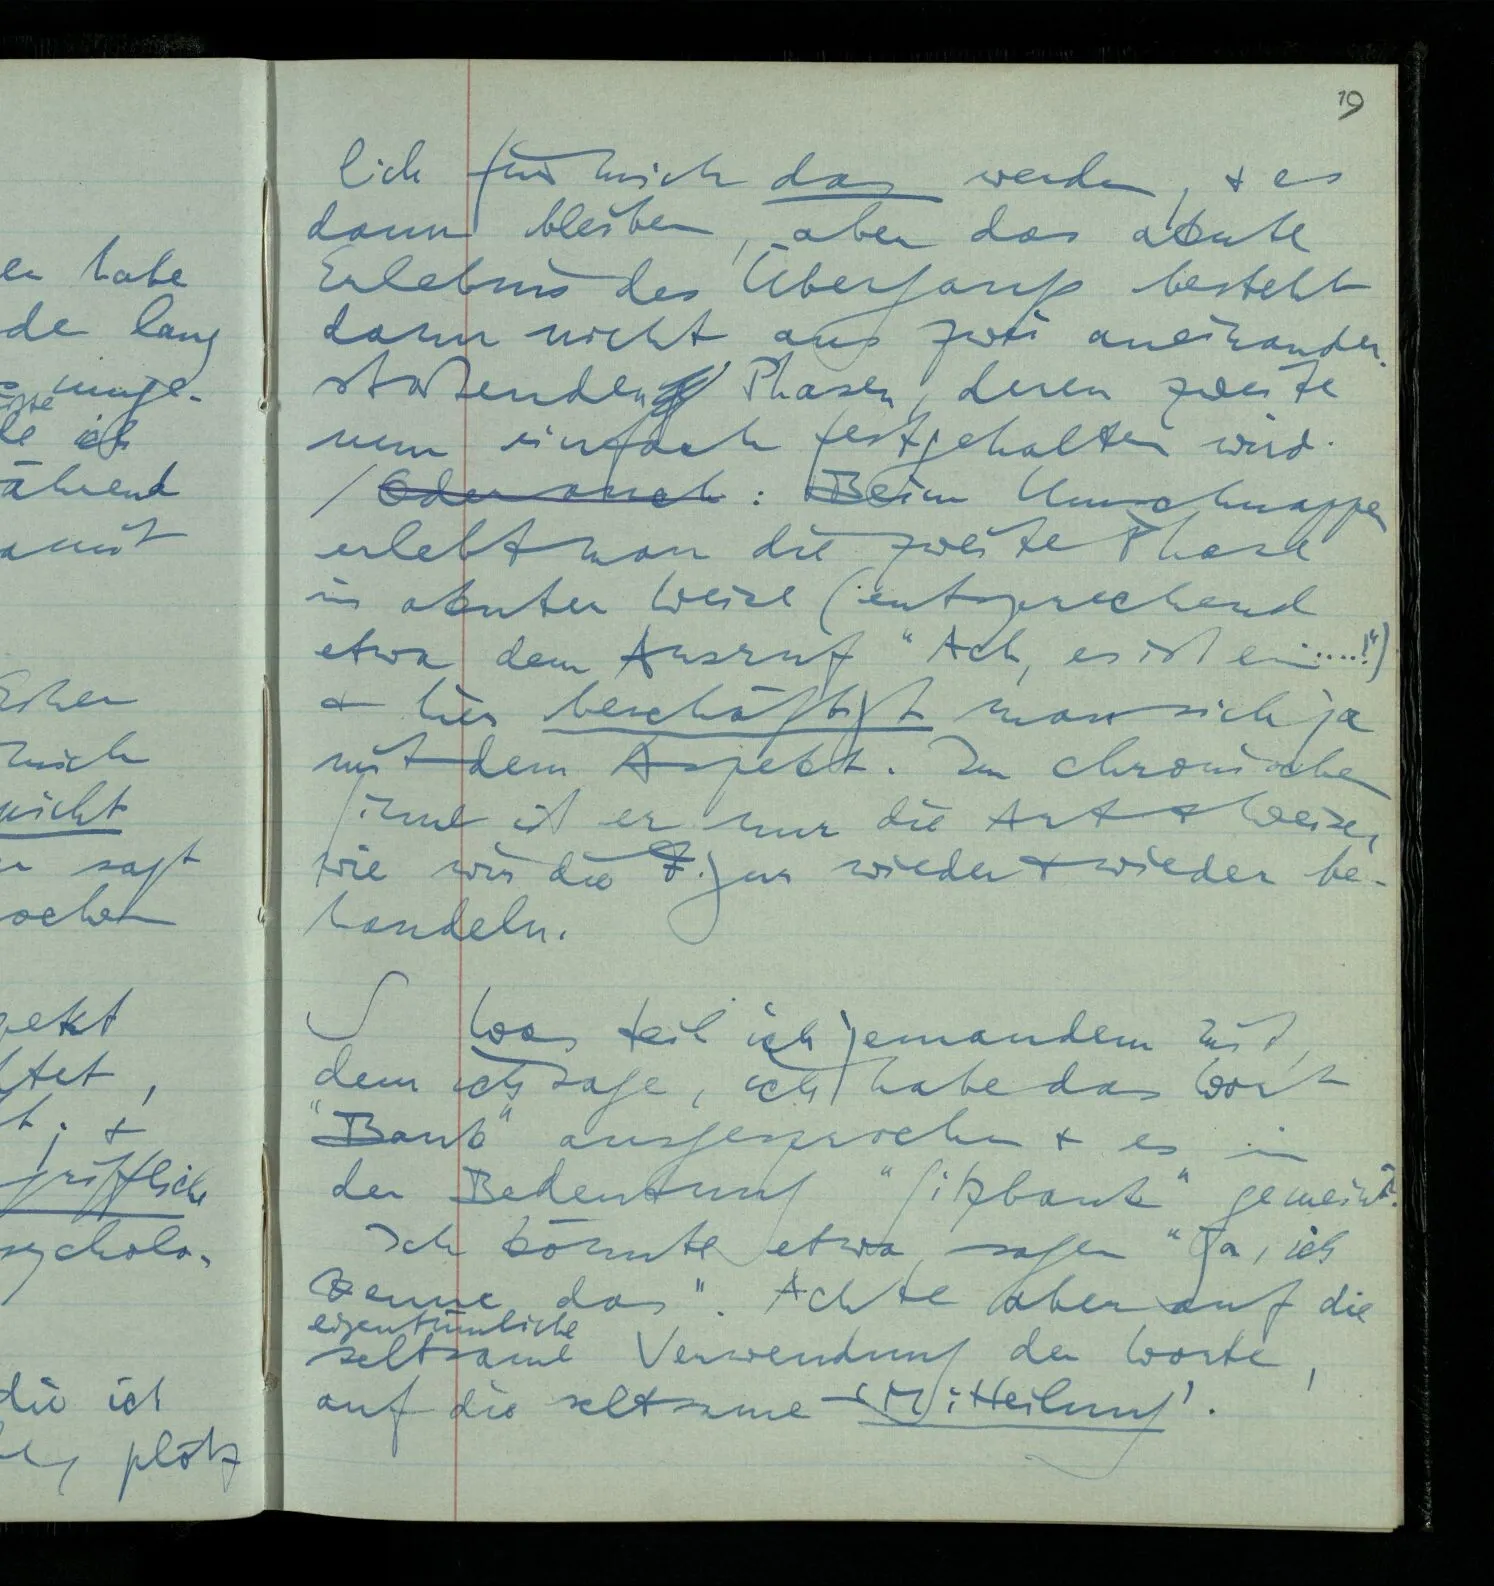 en habe
de lang
unge-
te ich
ährend
amit
mich
nicht
sagt
ochen
htet,
t; &
grifflich
sycholo-
die ich
plötz
19
lich für mich das werden, & es
dann bleiben, aber das akute
Erlebnis des Übergangs besteht
dann nicht aus zwei aneinander
stoßenden Phasen, deren zweite
nun einfach festgehalten wird.
/ Oder auch: Beim Umschnappen
erlebt man die zweite Phase
in akuter Weise (entsprechend
etwa dem Ausruf "Ach, es ist ein .....!")
& hier beschäftigt man sich ja
mit dem Aspekt. Im chronischen
Sinne ist er nur die Art & Weise,
wie wir die Figur wieder & wieder be-
handeln.
∫ Was teil ich jemandem mit,
dem ich sage, ich habe das Wort
"Bank" ausgesprochen & es in
der Bedeutung "Sitzbank" gemeint?
Ich könnte etwa sagen "Ja, ich
kenne das". Achte aber auf die
eigentümliche
seltsame Verwendung der Worte,
auf die seltsame 'Mitteilung'.